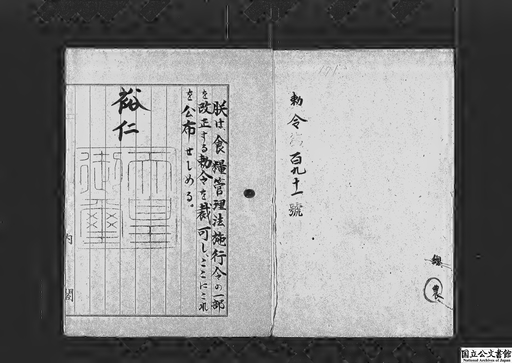 勅令第百九十一號
農
朕は食糧管理法施行令の一部
を改正する勅令を裁可し、ここにこれ
を公布せしめる。
裕仁
天皇御璽
内閣
国立公文書館
National Archives of Japan